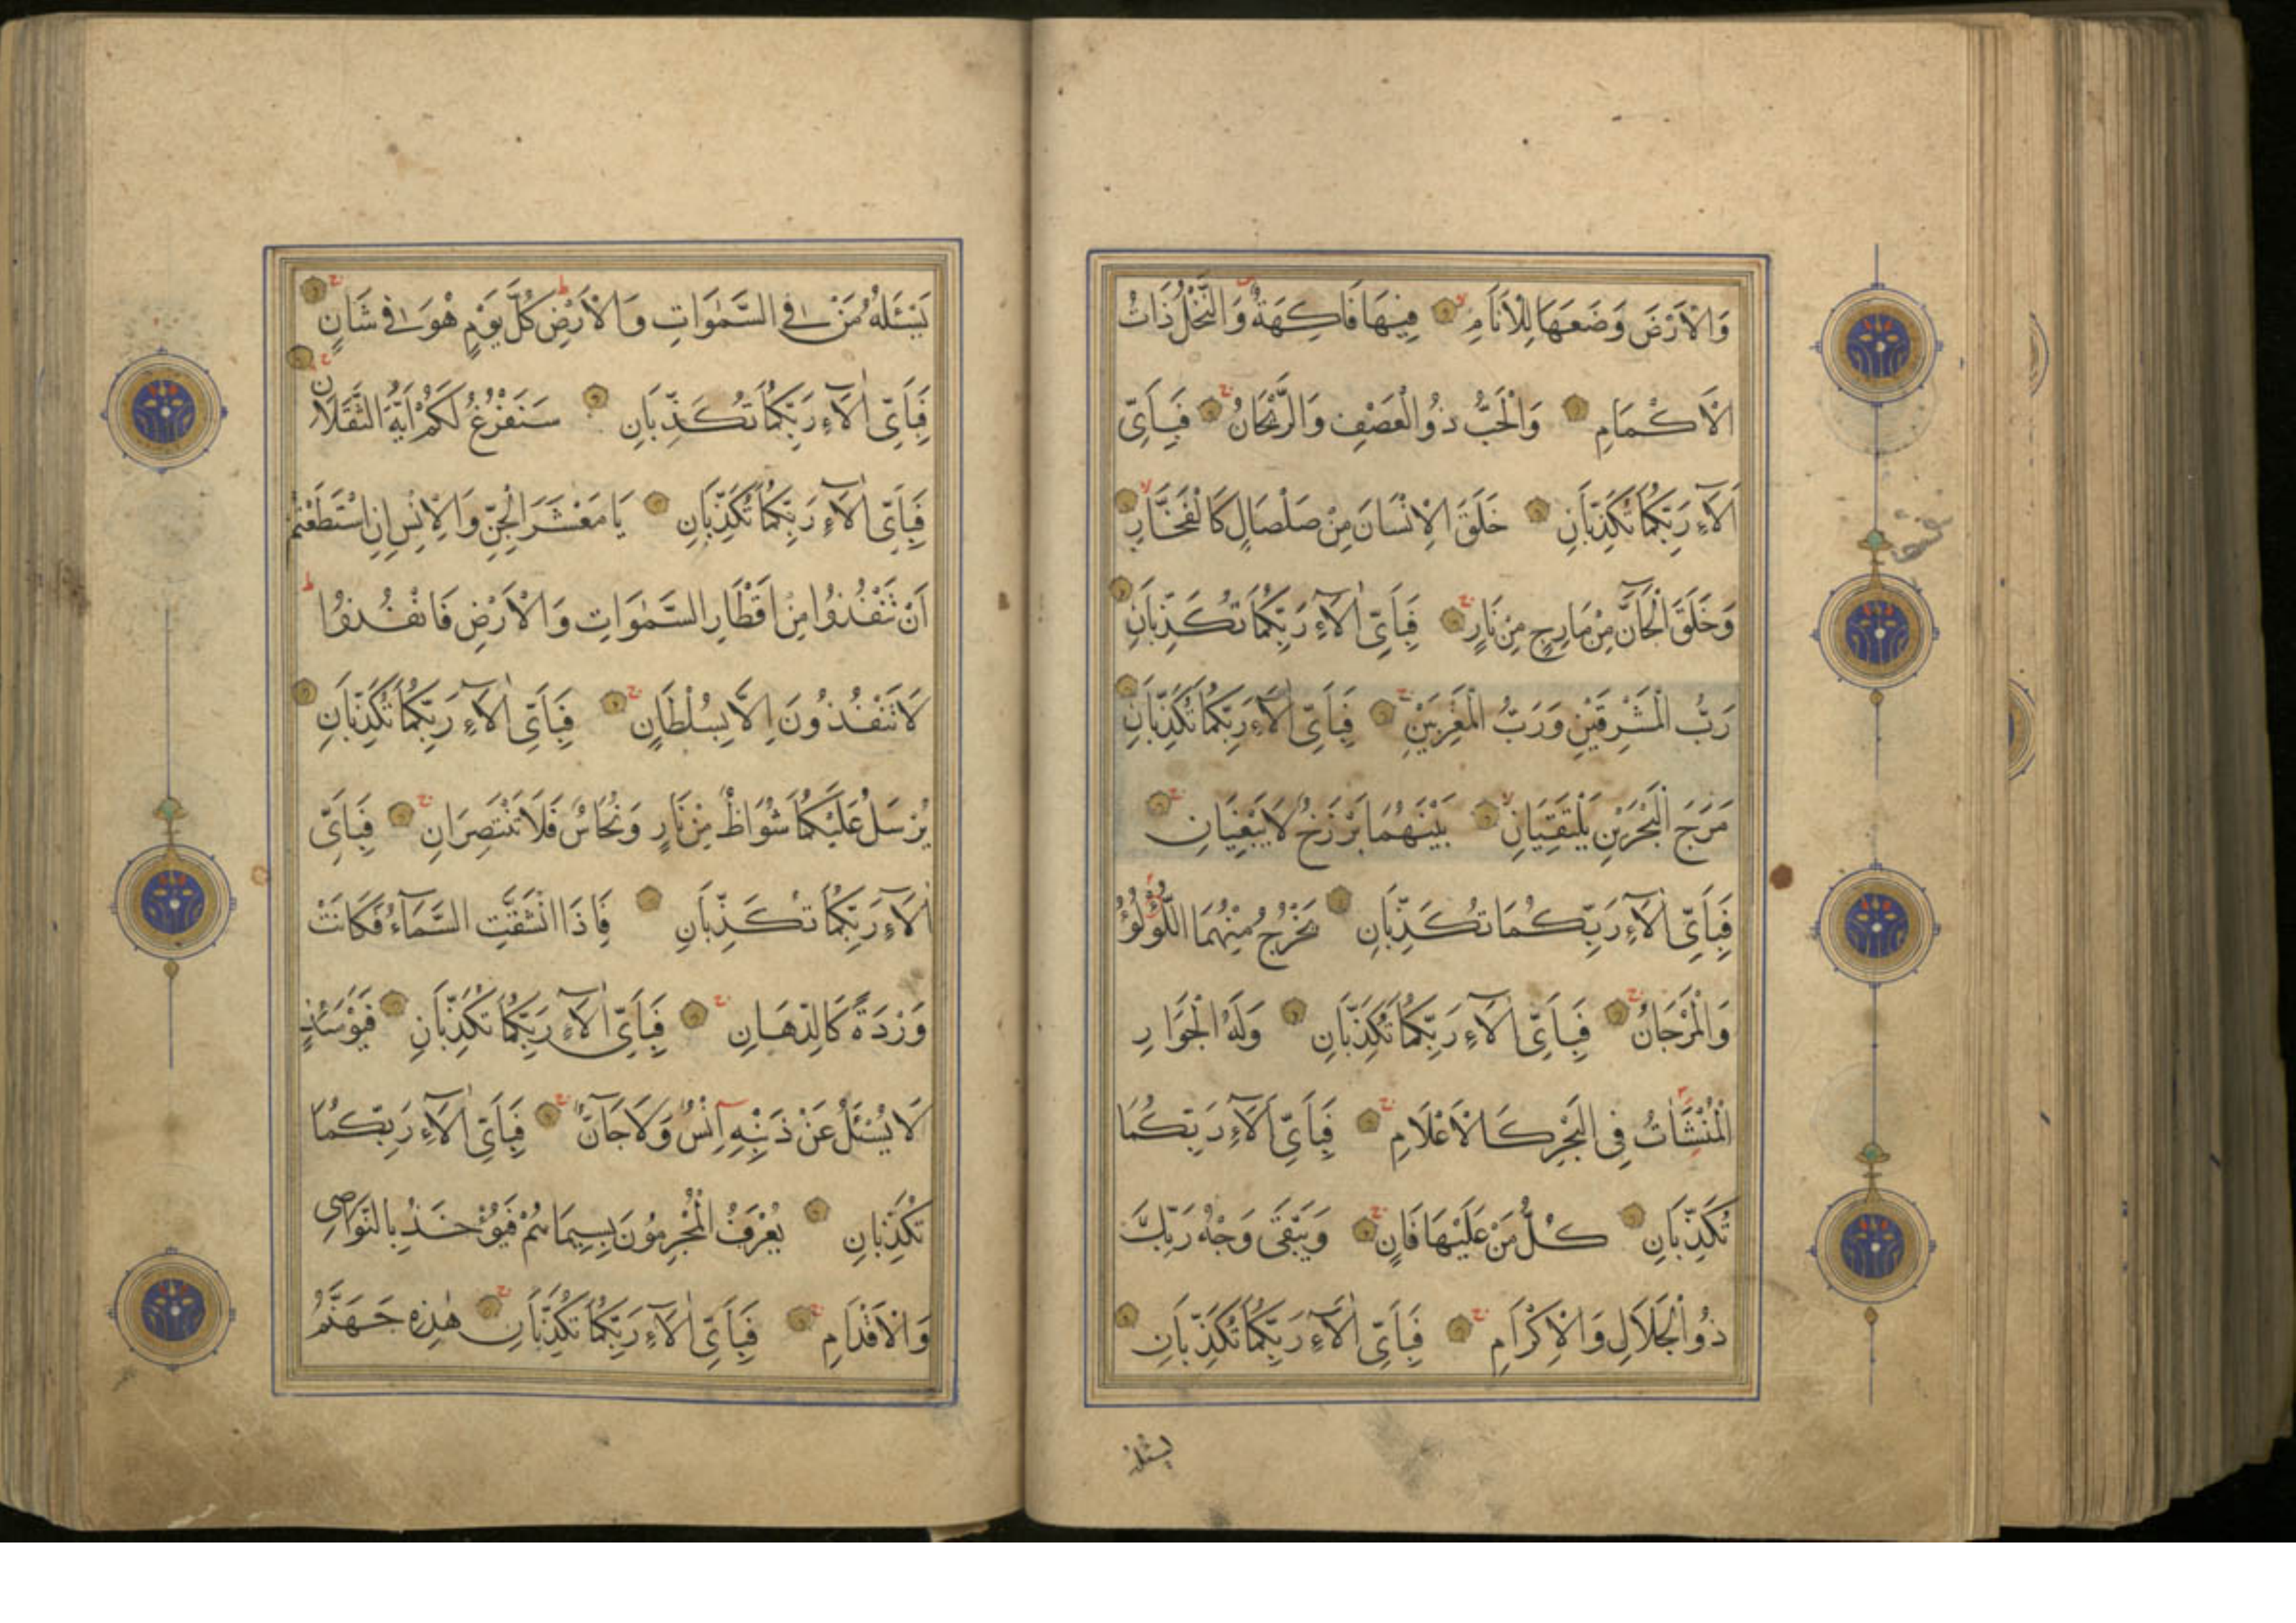 وَالْاَرْضَ وَضَعَهَا لِلْاَنَامِ فِيهَا فَاكِهَةٌ وَالنَّخْلُ ذَاتُ
الْاَكْمَامِ وَالْحَبُّ ذُو الْعَصْفِ وَالرَّيْحَانُ فَبِاَىِّ
اٰلَآءِ رَبِّكُمَا تُكَذِّبَانِ خَلَقَ الْاِنْسَانَ مِنْ صَلْصَالٍ كَالْفَخَّارِ
وَخَلَقَ الْجَآنَّ مِنْ مَارِجٍ مِنْ نَارٍ فَبِاَىِّ اٰلَآءِ رَبِّكُمَا تُكَذِّبَانِ
رَبُّ الْمَشْرِقَيْنِ وَرَبُّ الْمَغْرِبَيْنِ فَبِاَىِّ اٰلَآءِ رَبِّكُمَا تُكَذِّبَانِ
مَرَجَ الْبَحْرَيْنِ يَلْتَقِيَانِ بَيْنَهُمَا بَرْزَخٌ لَا يَبْغِيَانِ
فَبِاَىِّ اٰلَآءِ رَبِّكُمَا تُكَذِّبَانِ يَخْرُجُ مِنْهُمَا اللُّؤْلُؤُ
وَالْمَرْجَانُ فَبِاَىِّ اٰلَآءِ رَبِّكُمَا تُكَذِّبَانِ وَلَهُ الْجَوَارِ
الْمُنْشَاٰتُ فِى الْبَحْرِ كَالْاَعْلَامِ فَبِاَىِّ اٰلَآءِ رَبِّكُمَا
تُكَذِّبَانِ كُلُّ مَنْ عَلَيْهَا فَانٍ وَيَبْقَى وَجْهُ رَبِّكَ
ذُو الْجَلَالِ وَالْاِكْرَامِ فَبِاَىِّ اٰلَآءِ رَبِّكُمَا تُكَذِّبَانِ
يسئله
يَسْئَلُهُ مَنْ فِى السَّمٰوَاتِ وَالْاَرْضِ كُلَّ يَوْمٍ هُوَ فِى شَاْنٍ
فَبِاَىِّ اٰلَآءِ رَبِّكُمَا تُكَذِّبَانِ سَنَفْرُغُ لَكُمْ اَيُّهَ الثَّقَلَانِ
فَبِاَىِّ اٰلَآءِ رَبِّكُمَا تُكَذِّبَانِ يَا مَعْشَرَ الْجِنِّ وَالْاِنْسِ اِنِ اسْتَطَعْتُمْ
اَنْ تَنْفُذُوا مِنْ اَقْطَارِ السَّمٰوَاتِ وَالْاَرْضِ فَانْفُذُوا
لَا تَنْفُذُونَ اِلَّا بِسُلْطَانٍ فَبِاَىِّ اٰلَآءِ رَبِّكُمَا تُكَذِّبَانِ
يُرْسَلُ عَلَيْكُمَا شُوَاظٌ مِنْ نَارٍ وَنُحَاسٌ فَلَا تَنْتَصِرَانِ فَبِاَىِّ
اٰلَآءِ رَبِّكُمَا تُكَذِّبَانِ فَاِذَا انْشَقَّتِ السَّمَآءُ فَكَانَتْ
وَرْدَةً كَالدِّهَانِ فَبِاَىِّ اٰلَآءِ رَبِّكُمَا تُكَذِّبَانِ فَيَوْمَئِذٍ
لَا يُسْئَلُ عَنْ ذَنْبِهِ اِنْسٌ وَلَا جَآنٌّ فَبِاَىِّ اٰلَآءِ رَبِّكُمَا
تُكَذِّبَانِ يُعْرَفُ الْمُجْرِمُونَ بِسِيمَاهُمْ فَيُؤْخَذُ بِالنَّوَاصِى
وَالْاَقْدَامِ فَبِاَىِّ اٰلَآءِ رَبِّكُمَا تُكَذِّبَانِ هٰذِهِ جَهَنَّمُ